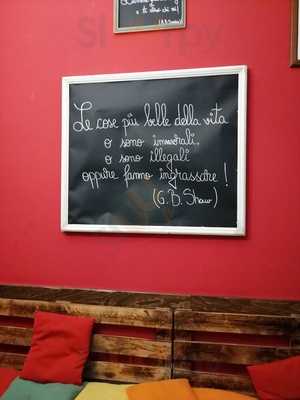 e ti dirò chi sei!
Le cose più belle della vita
o sono immorali,
o sono illegali
oppure fanno ingrassare!
(G.B. Shaw)